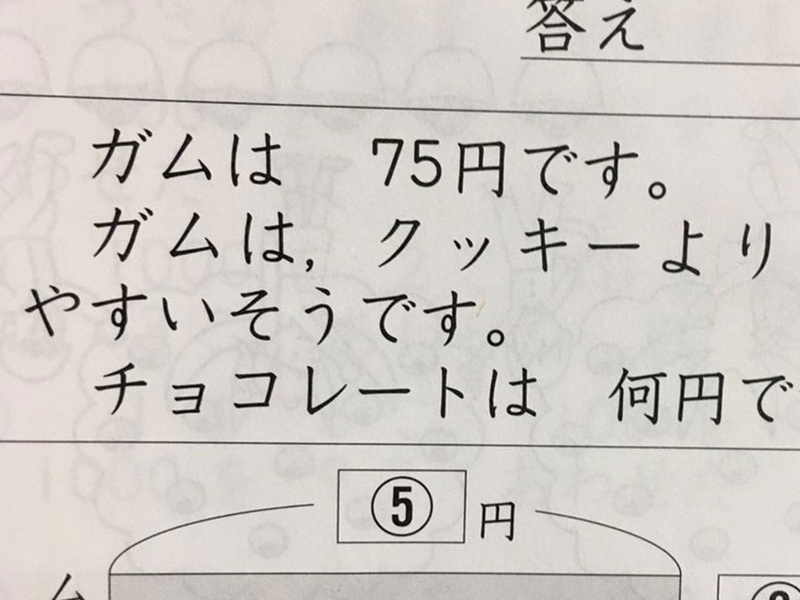 答え
ガムは 75円です。
ガムは, クッキーより
やすいそうです。
チョコレートは 何円で
⑤ 円
ム